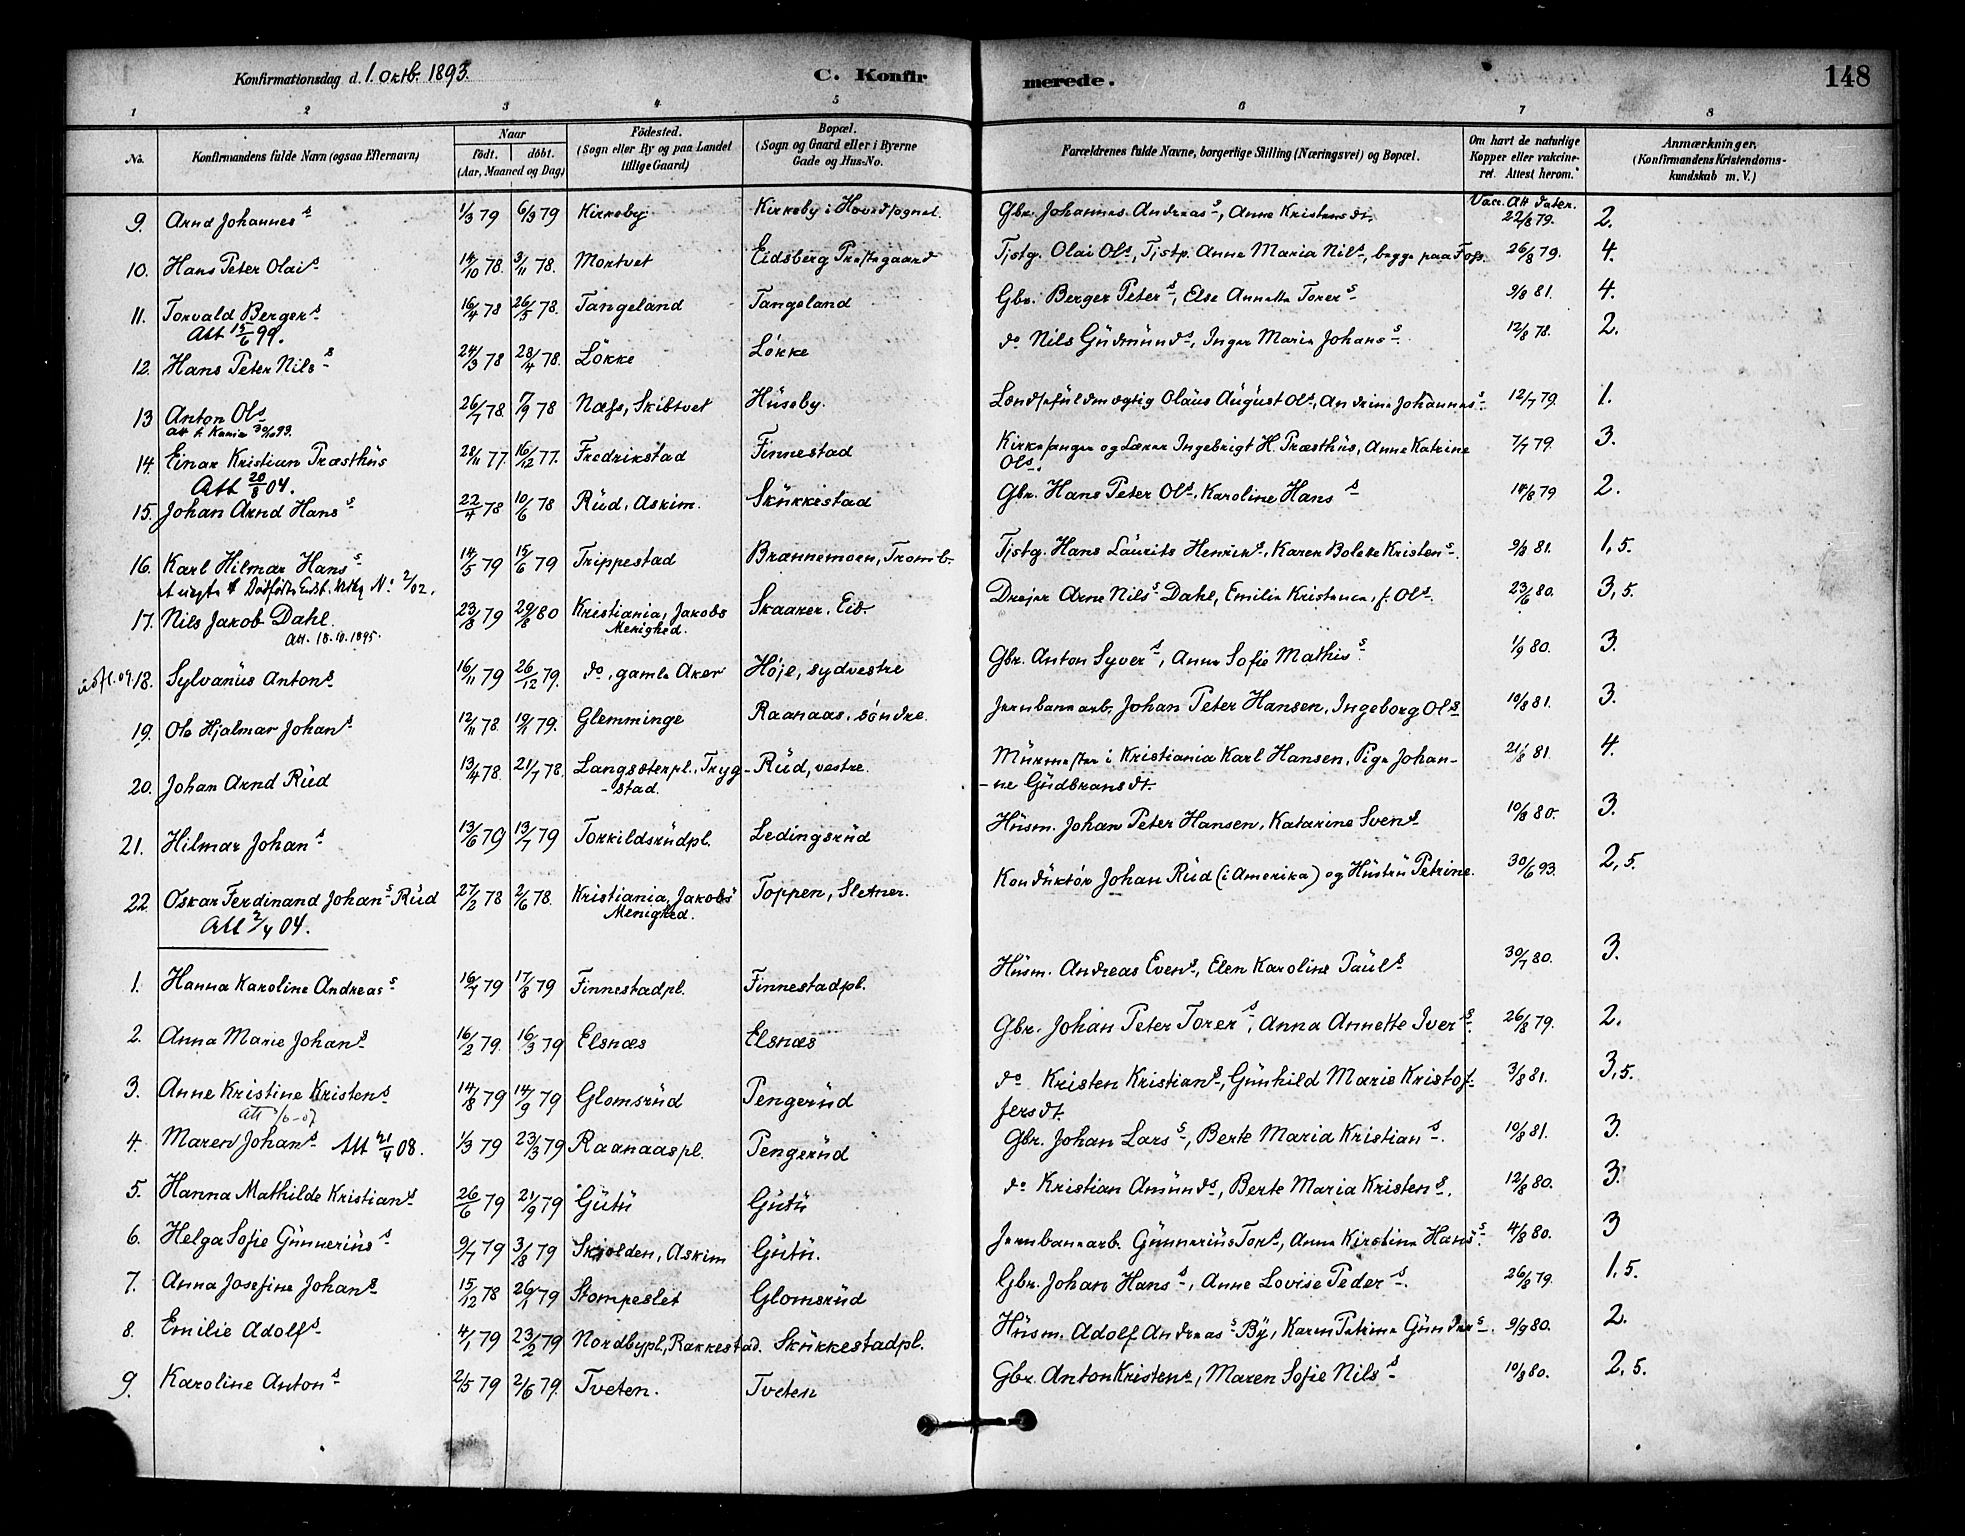 Konfirmationsdag d. 1. Oktb. 1893. C. Konfirmerede. 148
1 2 3 4 5 6 7 8
No. Konfirmandens fulde Navn (ogsaa Efternavn) Naar Födt. döbt. (Aar, Maaned og Dag) Födested. (Sogn eller By og paa Landet tillige Gaard) Bopæl. (Sogn og Gaard eller i Byerne Gade og Hus-No. Forældrenes fulde Navne, borgerlige Stilling (Næringsvei) og Bopæl. Om havt de naturlige Kopper eller vakcineret. Attest herom. Anmærkninger. (Konfirmandens Kristendomskundskab m. V.)
9. Arnd Johannes s 1/3 79 6/3 79 Kirkeby Kirkeby i Hovedsognet. Gbr. Johannes Andreas s, Anne Kristensdt. Vacc. Att. dater. 22/8 79. 2.
10. Hans Peter Olai s 14/10 78. 3/11 78. Mortvet Eidsberg Prestegaard Tjstg. Olai Ol s, Tjstp. Anne Maria Nil s, begge paa Foss. 26/8 79. 4.
11. Torvald Berger s 16/4 78 26/5 78. Tangeland Tangeland Gbr. Berger Peter s, Else Annette Torer s 9/8 81. 4.
Att 15/6 99.
12. Hans Peter Nils s 24/3 78 28/4 78. Løkke Løkke do Nils Gudmund s, Inger Marie Johans s. 12/8 78. 2.
13 Anton Ol s 26/7 78 7/9 78 Næss, Skibtvet Huseby. Lendsfuldmægtig Olaus August Ol s, Andrine Johannes s. 12/7 79. 1.
14. Einar Kristian Præsthus 28/11 77. 16/12 77. Fredrikstad Finnestad Kirkesanger og Lærer Ingebrigt H. Præsthus, Anne Katrine Ol s. 7/7 79. 3.
Att 20/8 04.
15. Johan Arnd Hans s 22/4 78 10/6 78 Rud, Askim. Skukkestad Gbr. Hans Peter Ol s. Karoline Hans s 14/8 79 2.
16. Karl Hilmar Hans s 14/5 79 15/6 79 Trippestad Brannemoen, Tromb. Tjstg. Hans Laurits Henrik s, Karen Bolette Kristen s. 9/8 81. 1,5.
17. Nils Jakob Dahl. 23/8 79 29/8 80 Kristiania, Jakobs Menighed. Skaarer. Eid. Drejer Arne Nils s Dahl, Emilie Kristence, f. Ol s. 23/6 80. 3,5.
Att. 18.10.1895.
18. Sylvanus Anton s 16/11 79 26/12 79. do, gamle Aker Høje, sydvestre Gbr. Anton Syver s, Anne Sofie Mathis s. 1/9 80. 3.
19. Ole Hjalmar Johan s 12/11 78. 19/1 79. Glemminge Raanaas, søndre. Jernbanearb. Johan Peter Hansen, Ingeborg Ol s 10/8 81. 3.
20. Johan Arnd Rud 13/4 78. 21/7 78. Langsæterpl., Trygstad. Rud, vestre. Murmester i Kristiania Karl Hansen, Pige Johanne Gudbransdt. 21/8 81. 4.
21. Hilmar Johan s 13/6 79 13/7 79 Torkildsrudpl. Ledingsrud Husm. Johan Peter Hansen, Katarine Sven s 10/8 80. 3.
22. Oskar Ferdinand Johan s Rud 27/2 78 2/6 78. Kristiania, Jakobs Menighed. Toppen, Sletner. Konduktør Johan Rud (i Amerika) og Hustru Petrine. 30/6 93. 2,5.
Att 2/4 04.
1. Hanna Karoline Andreas s 16/7 79 17/8 79 Finnestadpl. Finnestadpl. Husm. Andreas Even s, Elen Karoline Paul s 30/7 80. 3.
2. Anna Marie Johan s 16/2 79. 16/3 79 Elsnæs Elsnæs Gbr. Johan Peter Torer s, Anna Annette Iver s. 26/8 79. 2.
3. Anne Kristine Kristen s 14/8 79 14/9 79 Glomsrud Pengerud do Kristen Kristian s, Gunhild Marie Kristoffersdt. 3/8 81. 3,5.
4. Maren Johan s. Att 21/4 08. 1/3 79 23/3 79 Raanaaspl. Pengerud Gbr. Johan Lars s, Berte Maria Kristian s. 10/8 81. 3.
5. Hanna Mathilde Kristian s 26/6 79 21/9 79 Gutu Gutu do Kristian Amund s, Berte Maria Kristen s. 12/8 80. 3.
6. Helga Sofie Gunnerius s 9/7 79 3/8 79 Skjolden, Askim Gutu. Jernbanearb. Gunnerius Tor s, Anne Kirstine Hans s. 4/8 80. 3
7. Anna Josefine Johan s 15/12 78 26/1 79 Stompeslet Glomsrud Gbr. Johan Hans s, Anne Lovise Peder s. 26/8 79. 1,5.
8. Emilie Adolf s 4/1 79 23/2 79 Nordbypl., Rakkestad. Skukkestadpl. Husm. Adolf Andreas s By, Karen Petrine Gunder s. 9/9 80. 2.
9. Karoline Anton s 2/5 79 2/6 79. Tveten. Tveten Gbr. Anton Kristen s, Maren Sofie Nils s 10/8 80. 2,5.